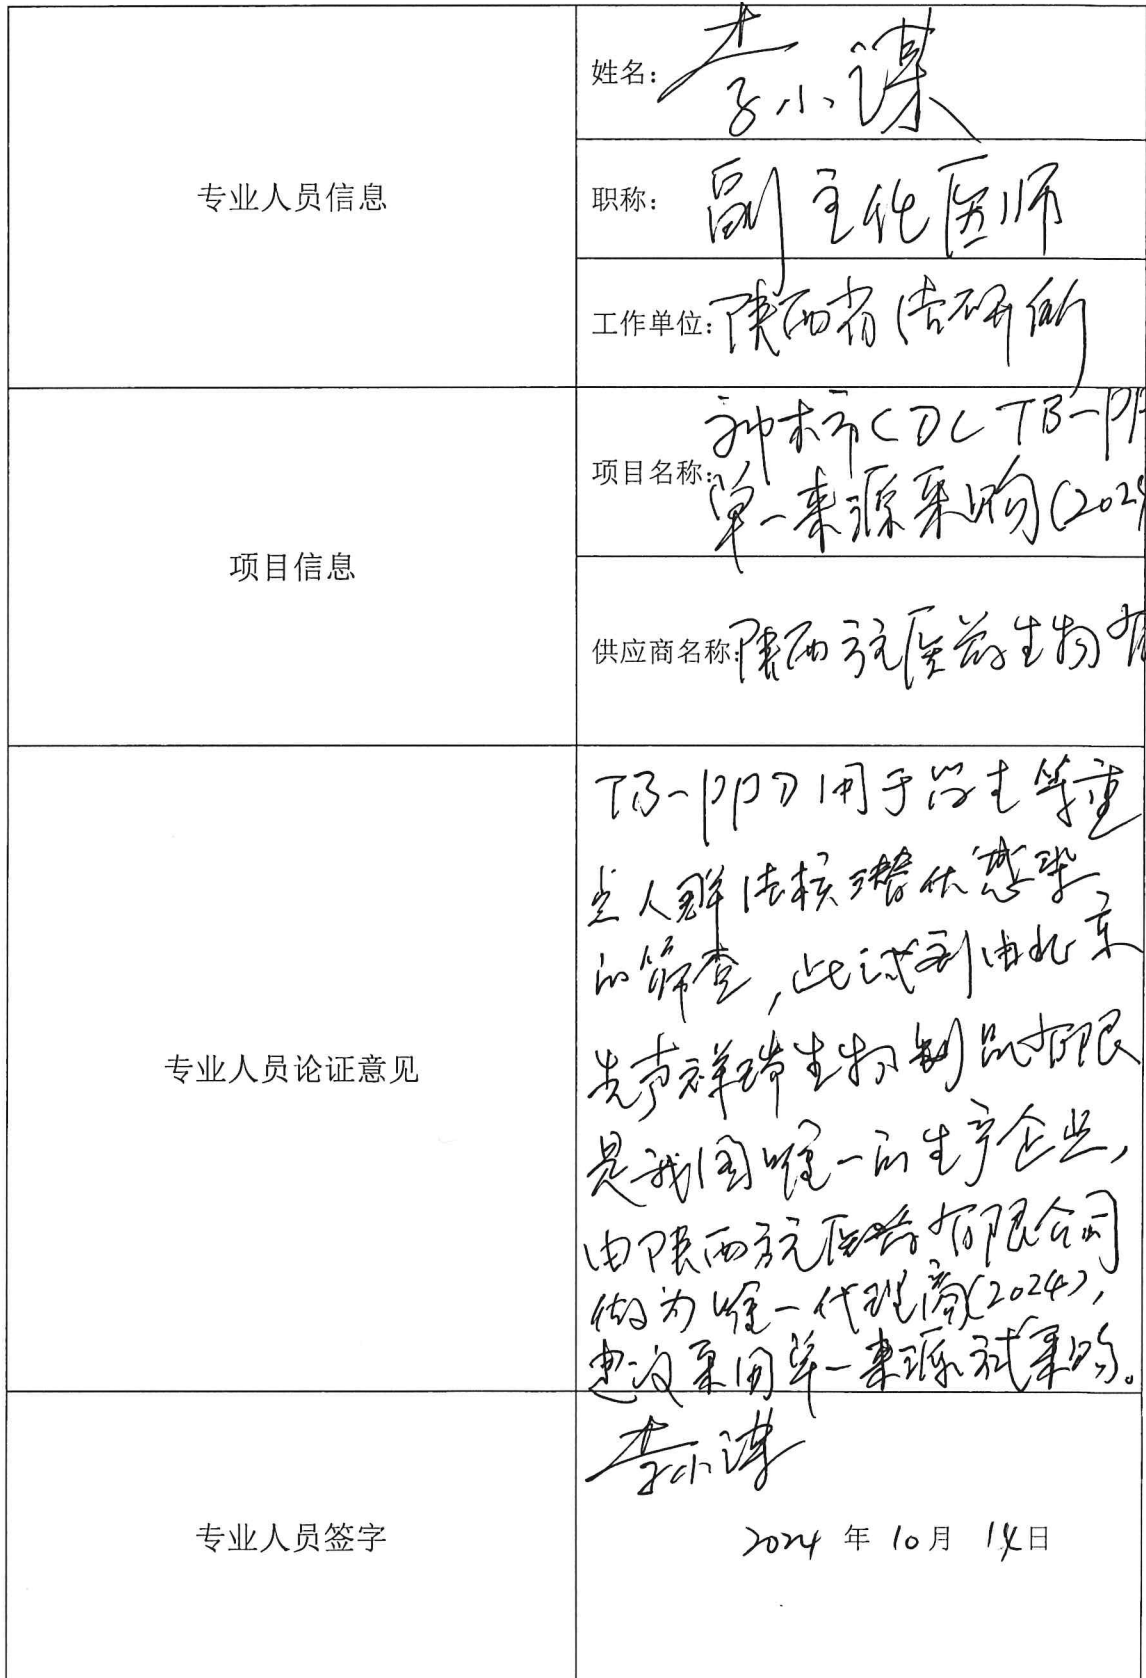 专业人员信息
姓名：李小谋
职称：副主任医师
工作单位：陕西省结研所
项目信息
项目名称：神木市CDC TB-PP
单一来源采购(202
供应商名称：陕西方元医药生物有
专业人员论证意见
TB-PPD用于学生等重
点人群结核潜伏感染
的筛查，此试剂由北京
先声祥瑞生物制品有限
是我国唯一的生产企业，
由陕西方元医药有限公司
做为唯一代理商(2024)，
建议采用单一来源式采购。
专业人员签字
李小谋
2024 年 10月 14日